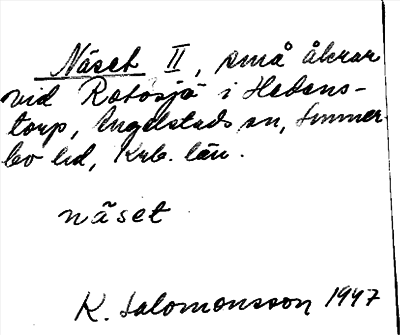 Näset II, små åkrar
vid Rotosjö i Hedens-
torp, Angelstads sn, Sunner-
bo hd, Krb. län.
näset
K. Salomonsson 1947